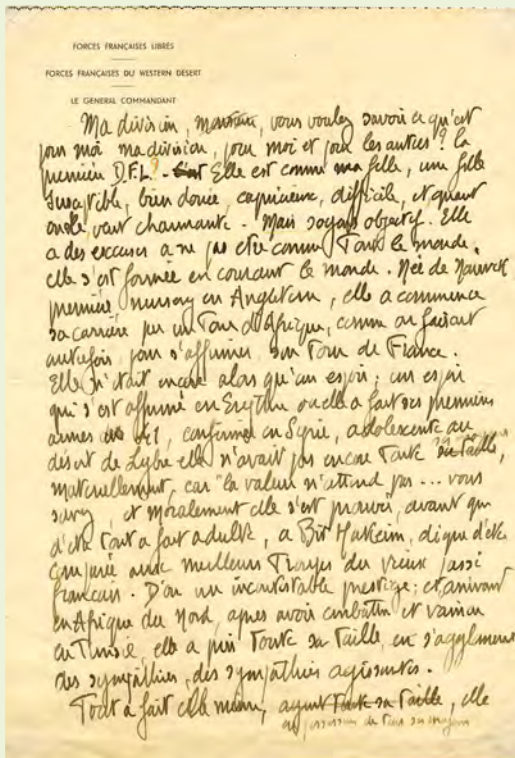 FORCES FRANÇAISES LIBRES
FORCES FRANÇAISES DU WESTERN DESERT
LE GENERAL COMMANDANT
Ma division, vous voulez savoir ce qu'est
pour moi ma division, pour moi et pour les autres ? La
première D.F.L. Elle est comme ma fille, une fille
susceptible, bien douée, capricieuse, difficile, et quand
elle veut charmante. Mais soyons objectif. Elle
a des excuses a ne pas etre comme Tout le monde.
elle s'est formée en courant le monde. Née de
première nursery en Angleterre, elle a commencé
sa carrière par un Tour d'Afrique, comme on faisait
autrefois pour s'affirmer son Tour de France.
Elle n'était encore alors qu'un espoir ; un espoir
qui s'est affirmé en Erythrée ou elle a fait ses premières
armes, confirmé en Syrie, adolescente au
désert de Lybie elle n'avait pas encore Toute sa Taille,
materiellement, car "la valeur n'attend pas ... vous
savez, et moralement elle s'est prouvée, avant que
d'etre Tout a fait adulte, a Bir Hakeim, digne d'etre
comparée aux meilleures Troupes du vieux passé
français. D'ou un incontestable prestige ; et arrivant
en Afrique du Nord, apres avoir combattu et vaincu
en Tunisie, elle a pris Toute sa Taille, en s'agglomerant
des sympathies, des sympathies agissantes.
Tout a fait elle même, ayant Toute sa Taille, elle
en possession de Tous ses moyens